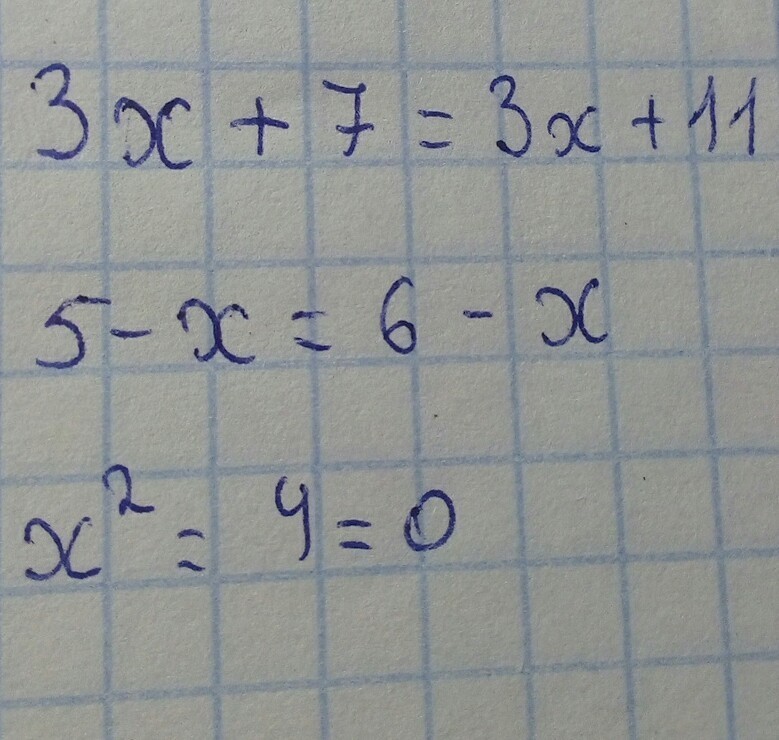 3x + 7 = 3x + 11
5 - x = 6 - x
x² = 4 = 0